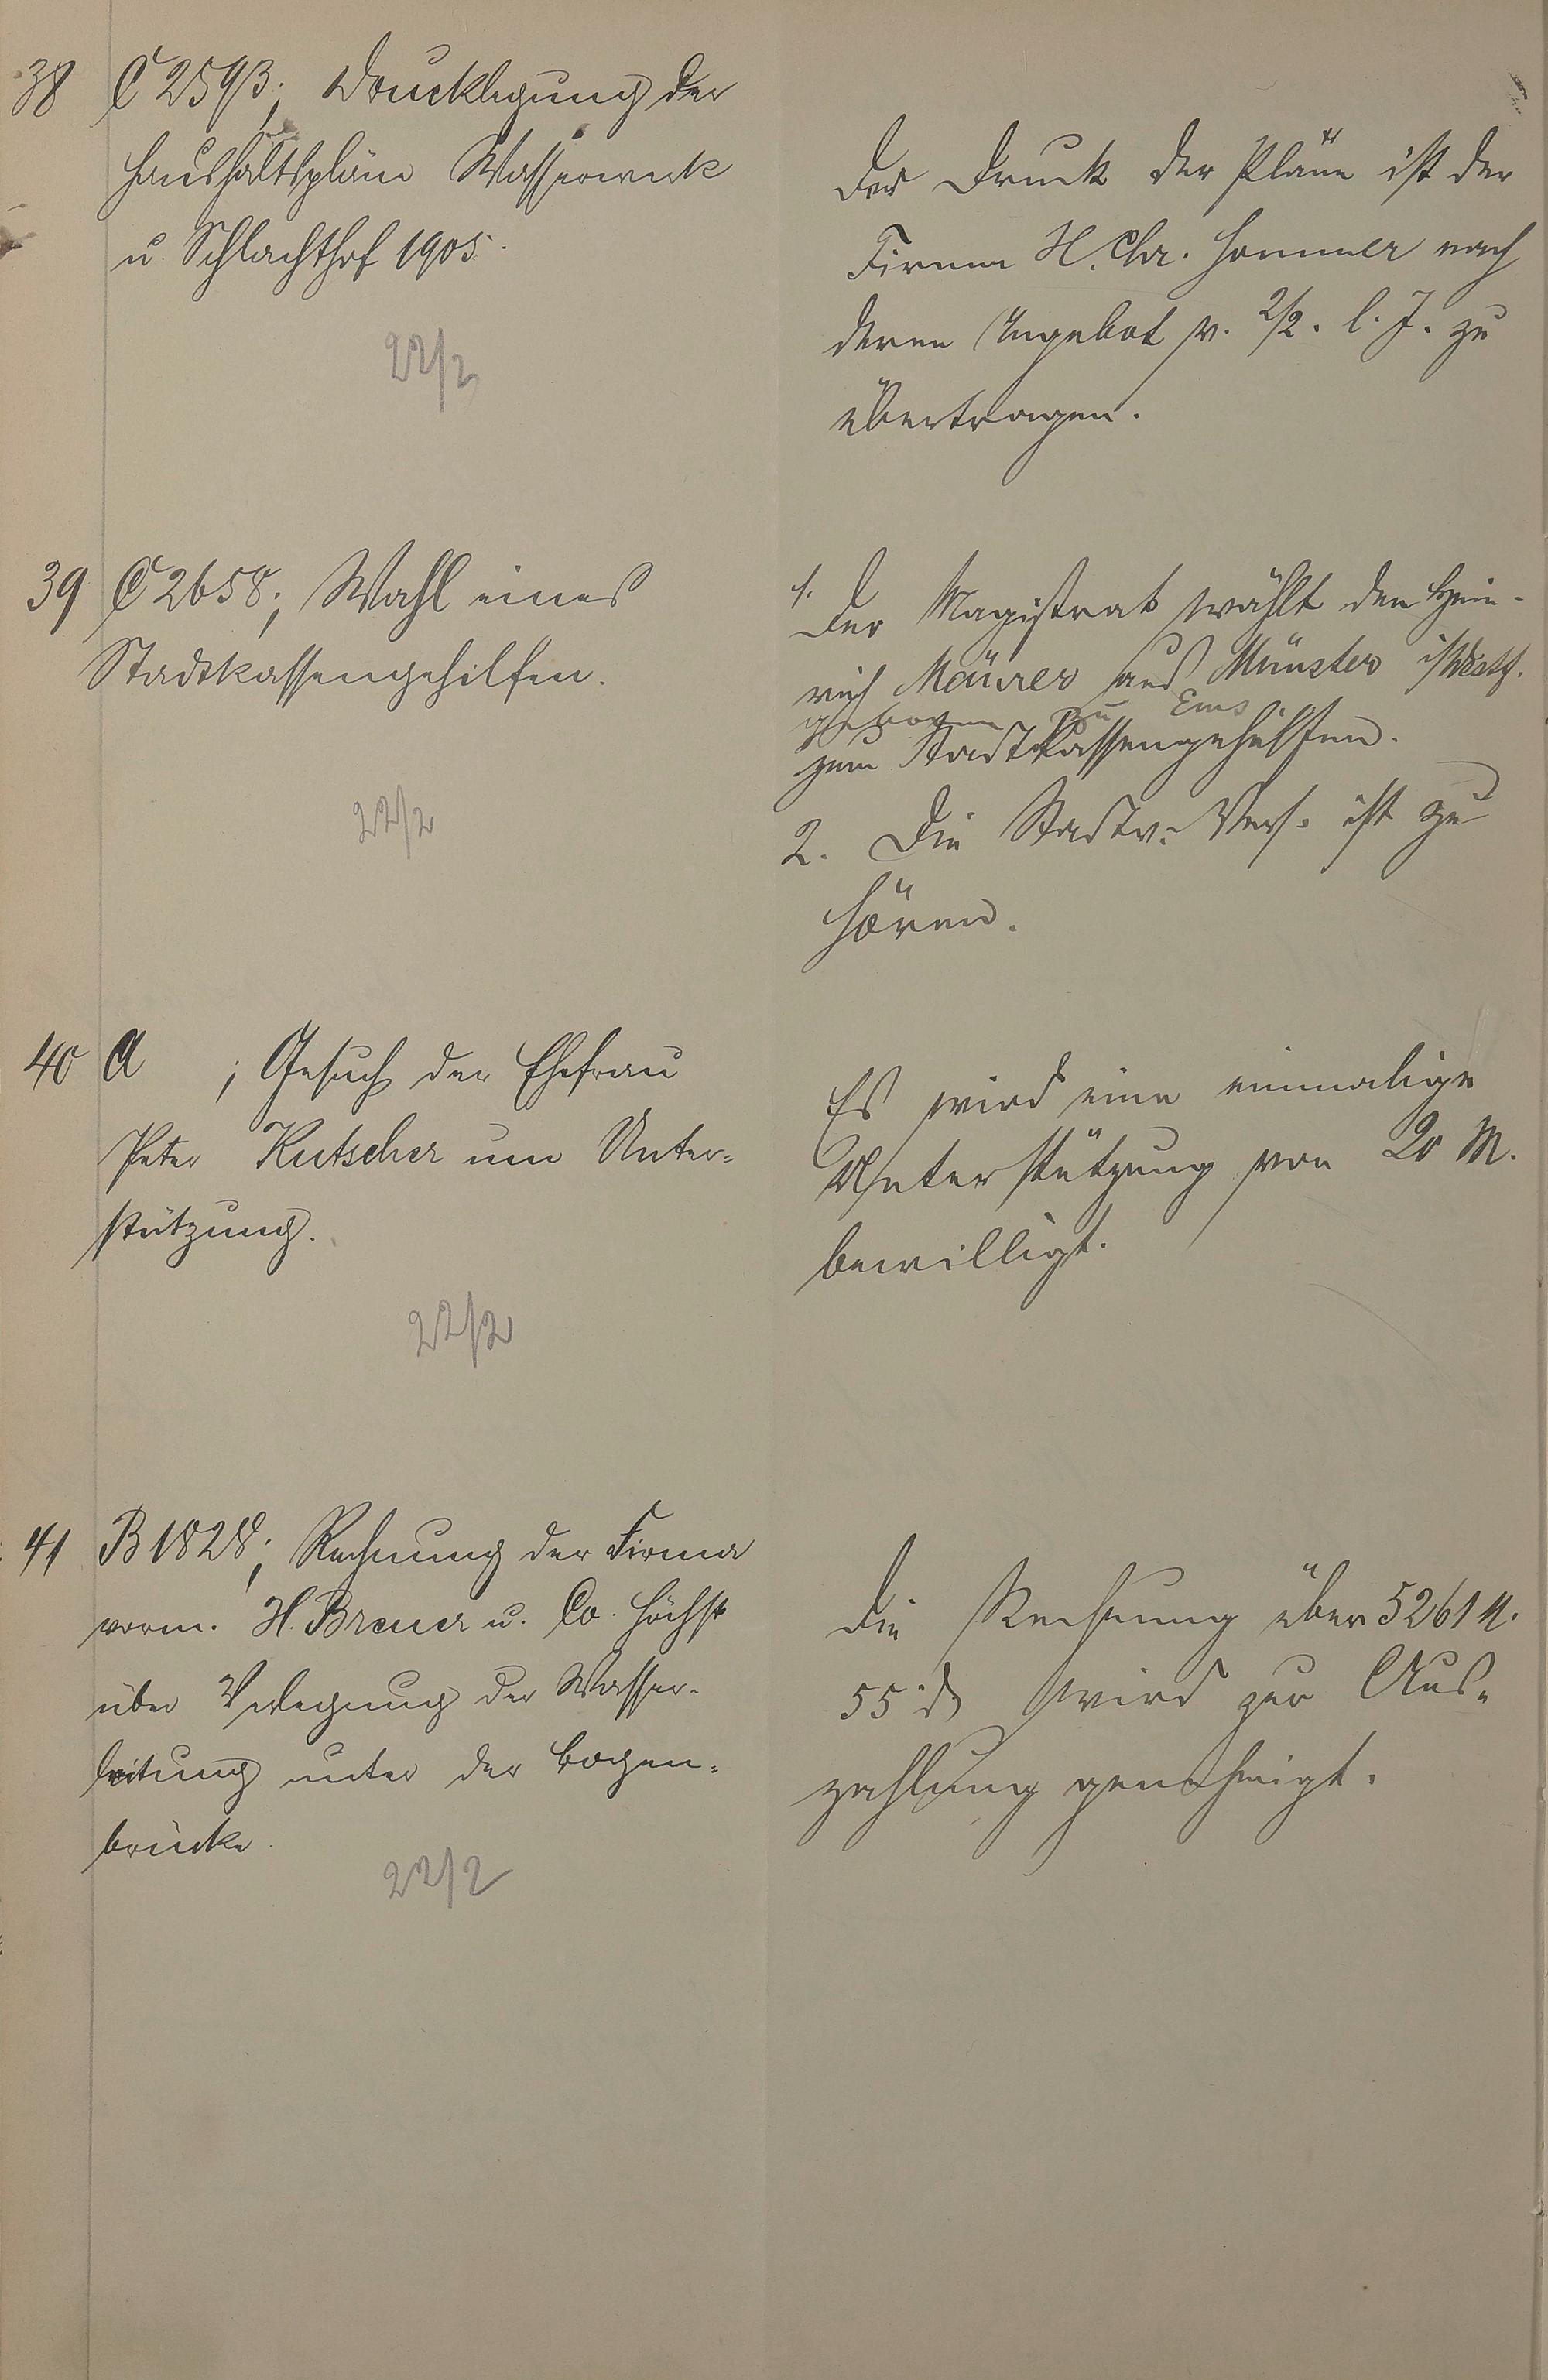 38 C 2593; Drucklegung der
Haushaltspläne Wasserwerk
u. Schlachthof 1905.
22/2
Der Druck der Pläne ist der
Firma H. Chr. Sommer nach
deren Angebot v. 2/2. l. J. zu
übertragen.
39 C 2658; Wahl eines
Stadtkassengehilfen.
22/2
1. Der Magistrat wählt den Hein-
rich Mäurer aus Münster i/Westf.
geboren zu Ems
zum Stadtkassengehilfen.
2. Die Stadtv. Vers. ist zu
hören.
40 A ; Gesuch der Ehefrau
Peter Kutscher um Unter-
stützung.
22/2
Es wird eine einmalige
Unterstützung von 20 M.
bewilligt.
41 B 1828; Rechnung der Firma
vorm. H. Breuer u. Co. Höchst
über Verlegung der Wasser-
leitung unter der Bogen-
brücke.
22/2
Die Rechnung über 5261 M.
55 ₰ wird zur Aus-
zahlung genehmigt.